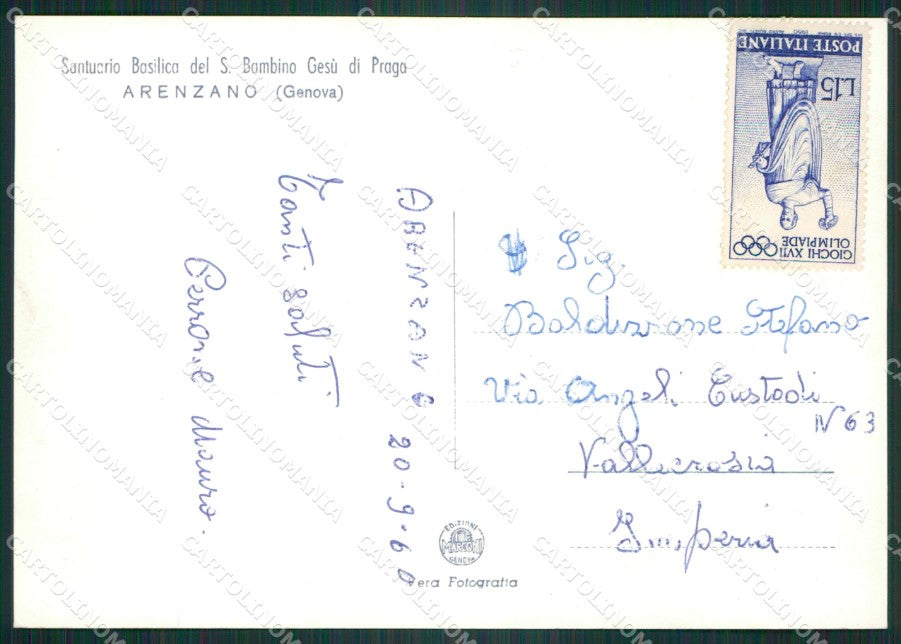 Santuario Basilica del S. Bambino Gesù di Praga
ARENZANO (Genova)
ARENZANO 20-9-60
Tanti saluti
Perrone Mauro.
Sig.
Baldizzone Stefano
Via Angeli Custodi
N 63
Vallecrosia
Imperia
POSTE ITALIANE
L.15
GIOCHI XVII
OLIMPIADE
EDIZIONI
MARCONI
GENOVA
Vera Fotografia
CARTOLINOMANIA